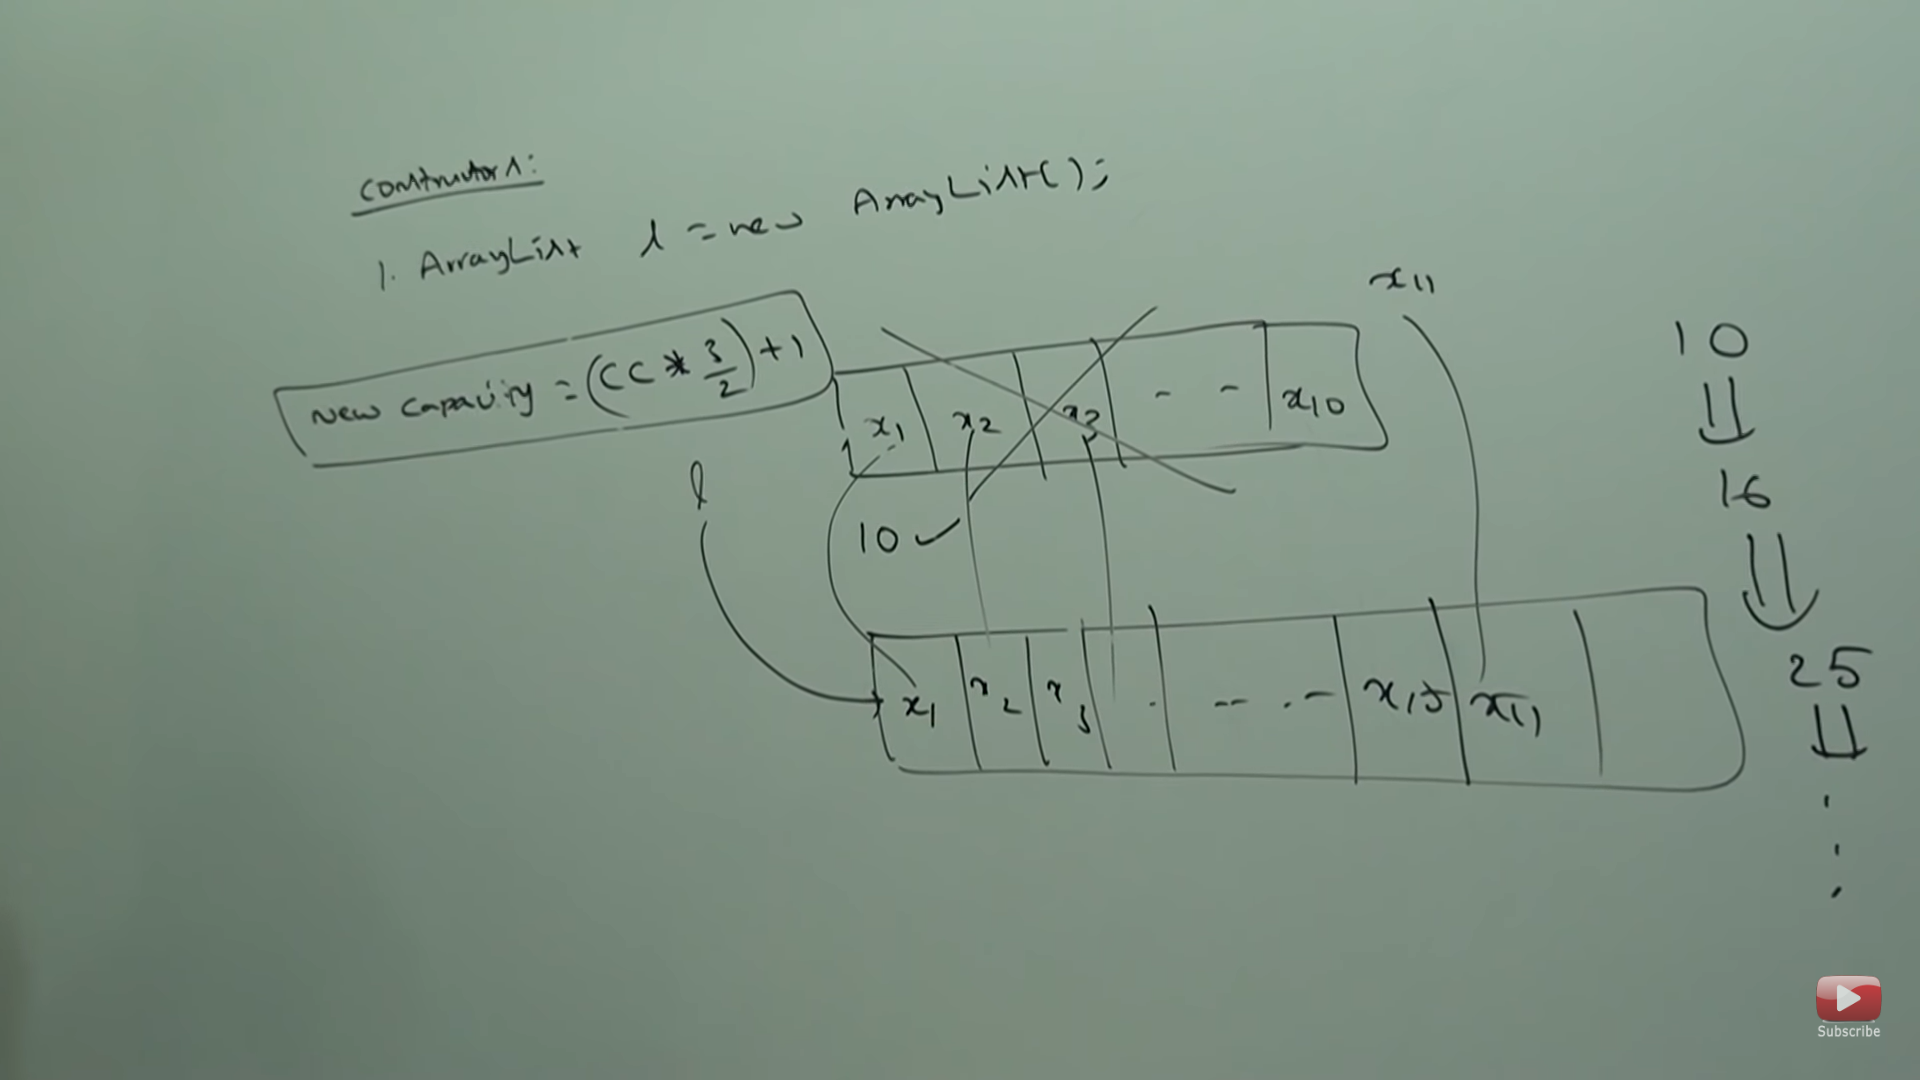 Constructors:
1. ArrayList l = new ArrayList();
New capacity = (CC * 3/2) + 1
x11
x1 x2 x3 - - x10
l
10 ✓
x1 x2 x3 . -- . - x10 x11
10
⇓
16
⇓
25
⇓
.
.
.
Subscribe